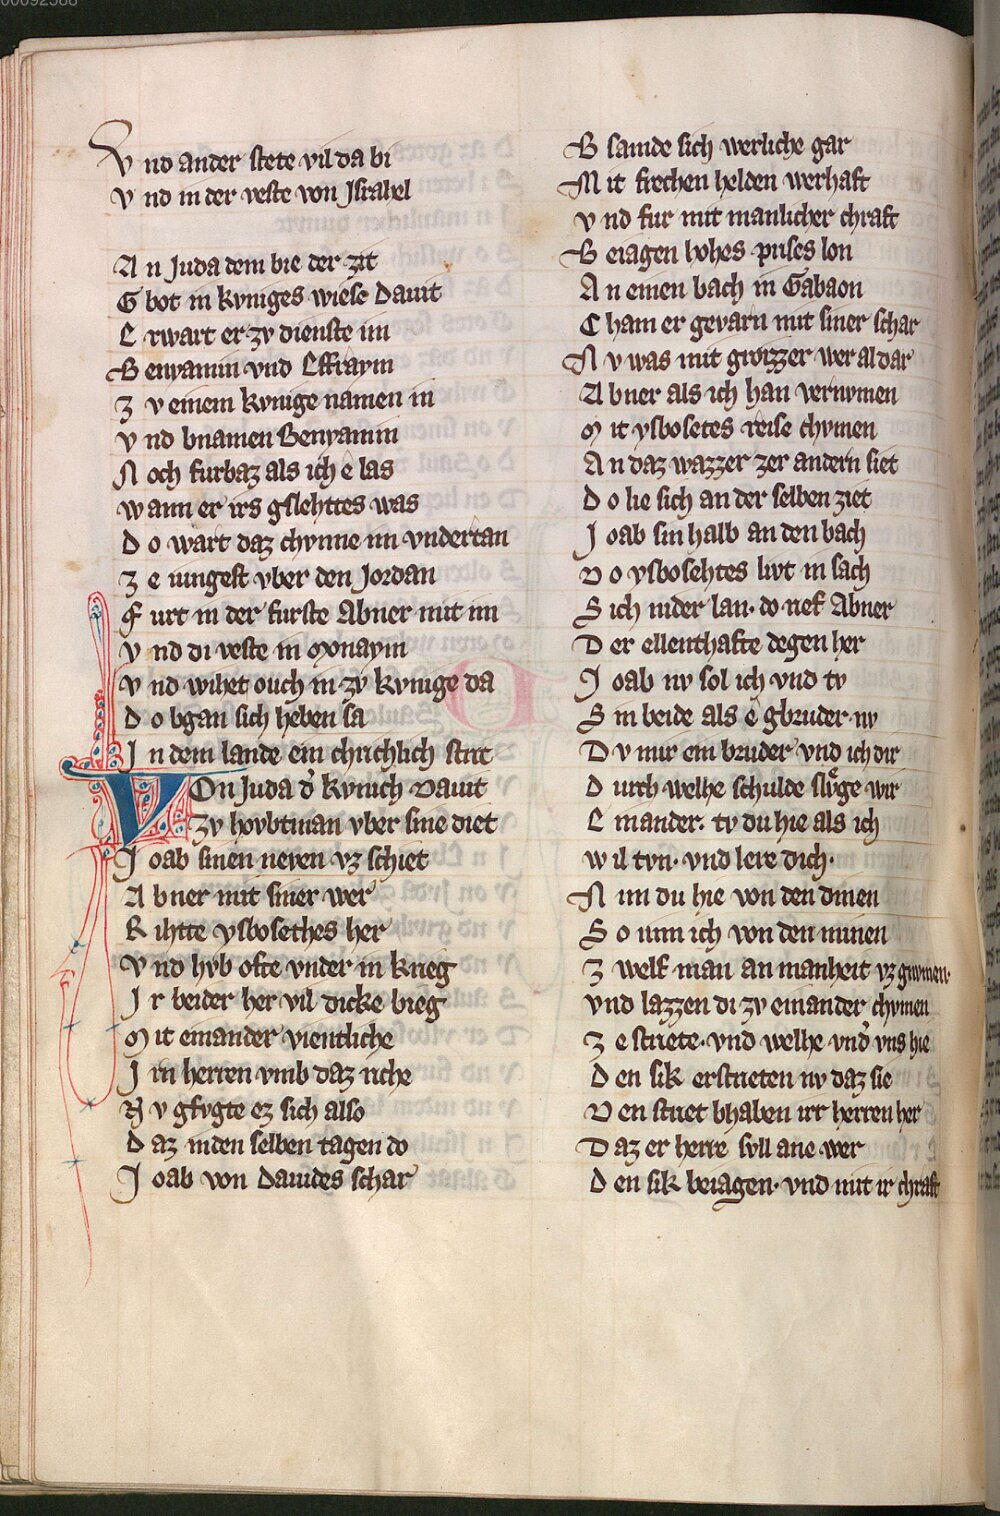 00092588
V nd ander stete vil da bi
V nd in der veste von Jsrahel
A n Juda dem bie der zit
G bot in kyniges wiese Dauit
E rwart er zv dienste im
B enyamin vnd Effraym
Z v einem kynige namen in
V nd bnamen Benyamin
N och furbaz als ich e las
W ann er irs gslehttes was
D o wart daz chynne im vndertan
Z e iungest vber den Jordan
F urt in der furste Abner mit im
V nd di veste in Monaym
V nd wihet ouch in zv kynige da
D o bgan sich heben sa
J n dem lande ein chrichlich strit
Von Juda d̕ kynich Dauit
Zv hovbtman vber sine diet
J oab sinen neven vz schiet
A bner mit siner wer
R ihtte ysbosethes her
V nd hvb ofte vnder in krieg
J r beider her vil dicke bieg
M it einander vientliche
J rn herren vmb daz riche
N v gfvgte ez sich also
D az in den selben tagen do
J oab von Dauides schar
B samde sich werliche gar
M it frechen helden werhaft
V nd fur mit manlicher chraft
B eiagen hohes prises lon
A n einen bach in Gabaon
C ham er gevarn mit siner schar
N v was mit grozzer wer al dar
A bner als ich han vernvmen
M it ysbosetes reise chvmen
A n daz wazzer zer andern siet
D o lie sich an der selben ziet
J oab sin halb an den bach
D o ysbosehtes livt in sach
S ich nider lan· do rief Abner
D er ellenthafte degen her
J oab nv sol ich vnd tv
S in beide als e gbruder nv
D v mir ein bruder vnd ich dir
D urch welhe schulde slvge wir
E inander· tv du hie als ich
W il tvn· vnd lere dich·
N im du hie von den dinen
S o nim ich von den minen
Z welf man an manheit vz gnvmen·
Vnd lazzen di zv einander chvmen
Z e striete· vnd welhe vnd̕ vns hie
D en sik erstrieten nv daz sie
D en striet bhaben irr herren her
D az er herre svll ane wer
D en sik beiagen· vnd mit ir chraft